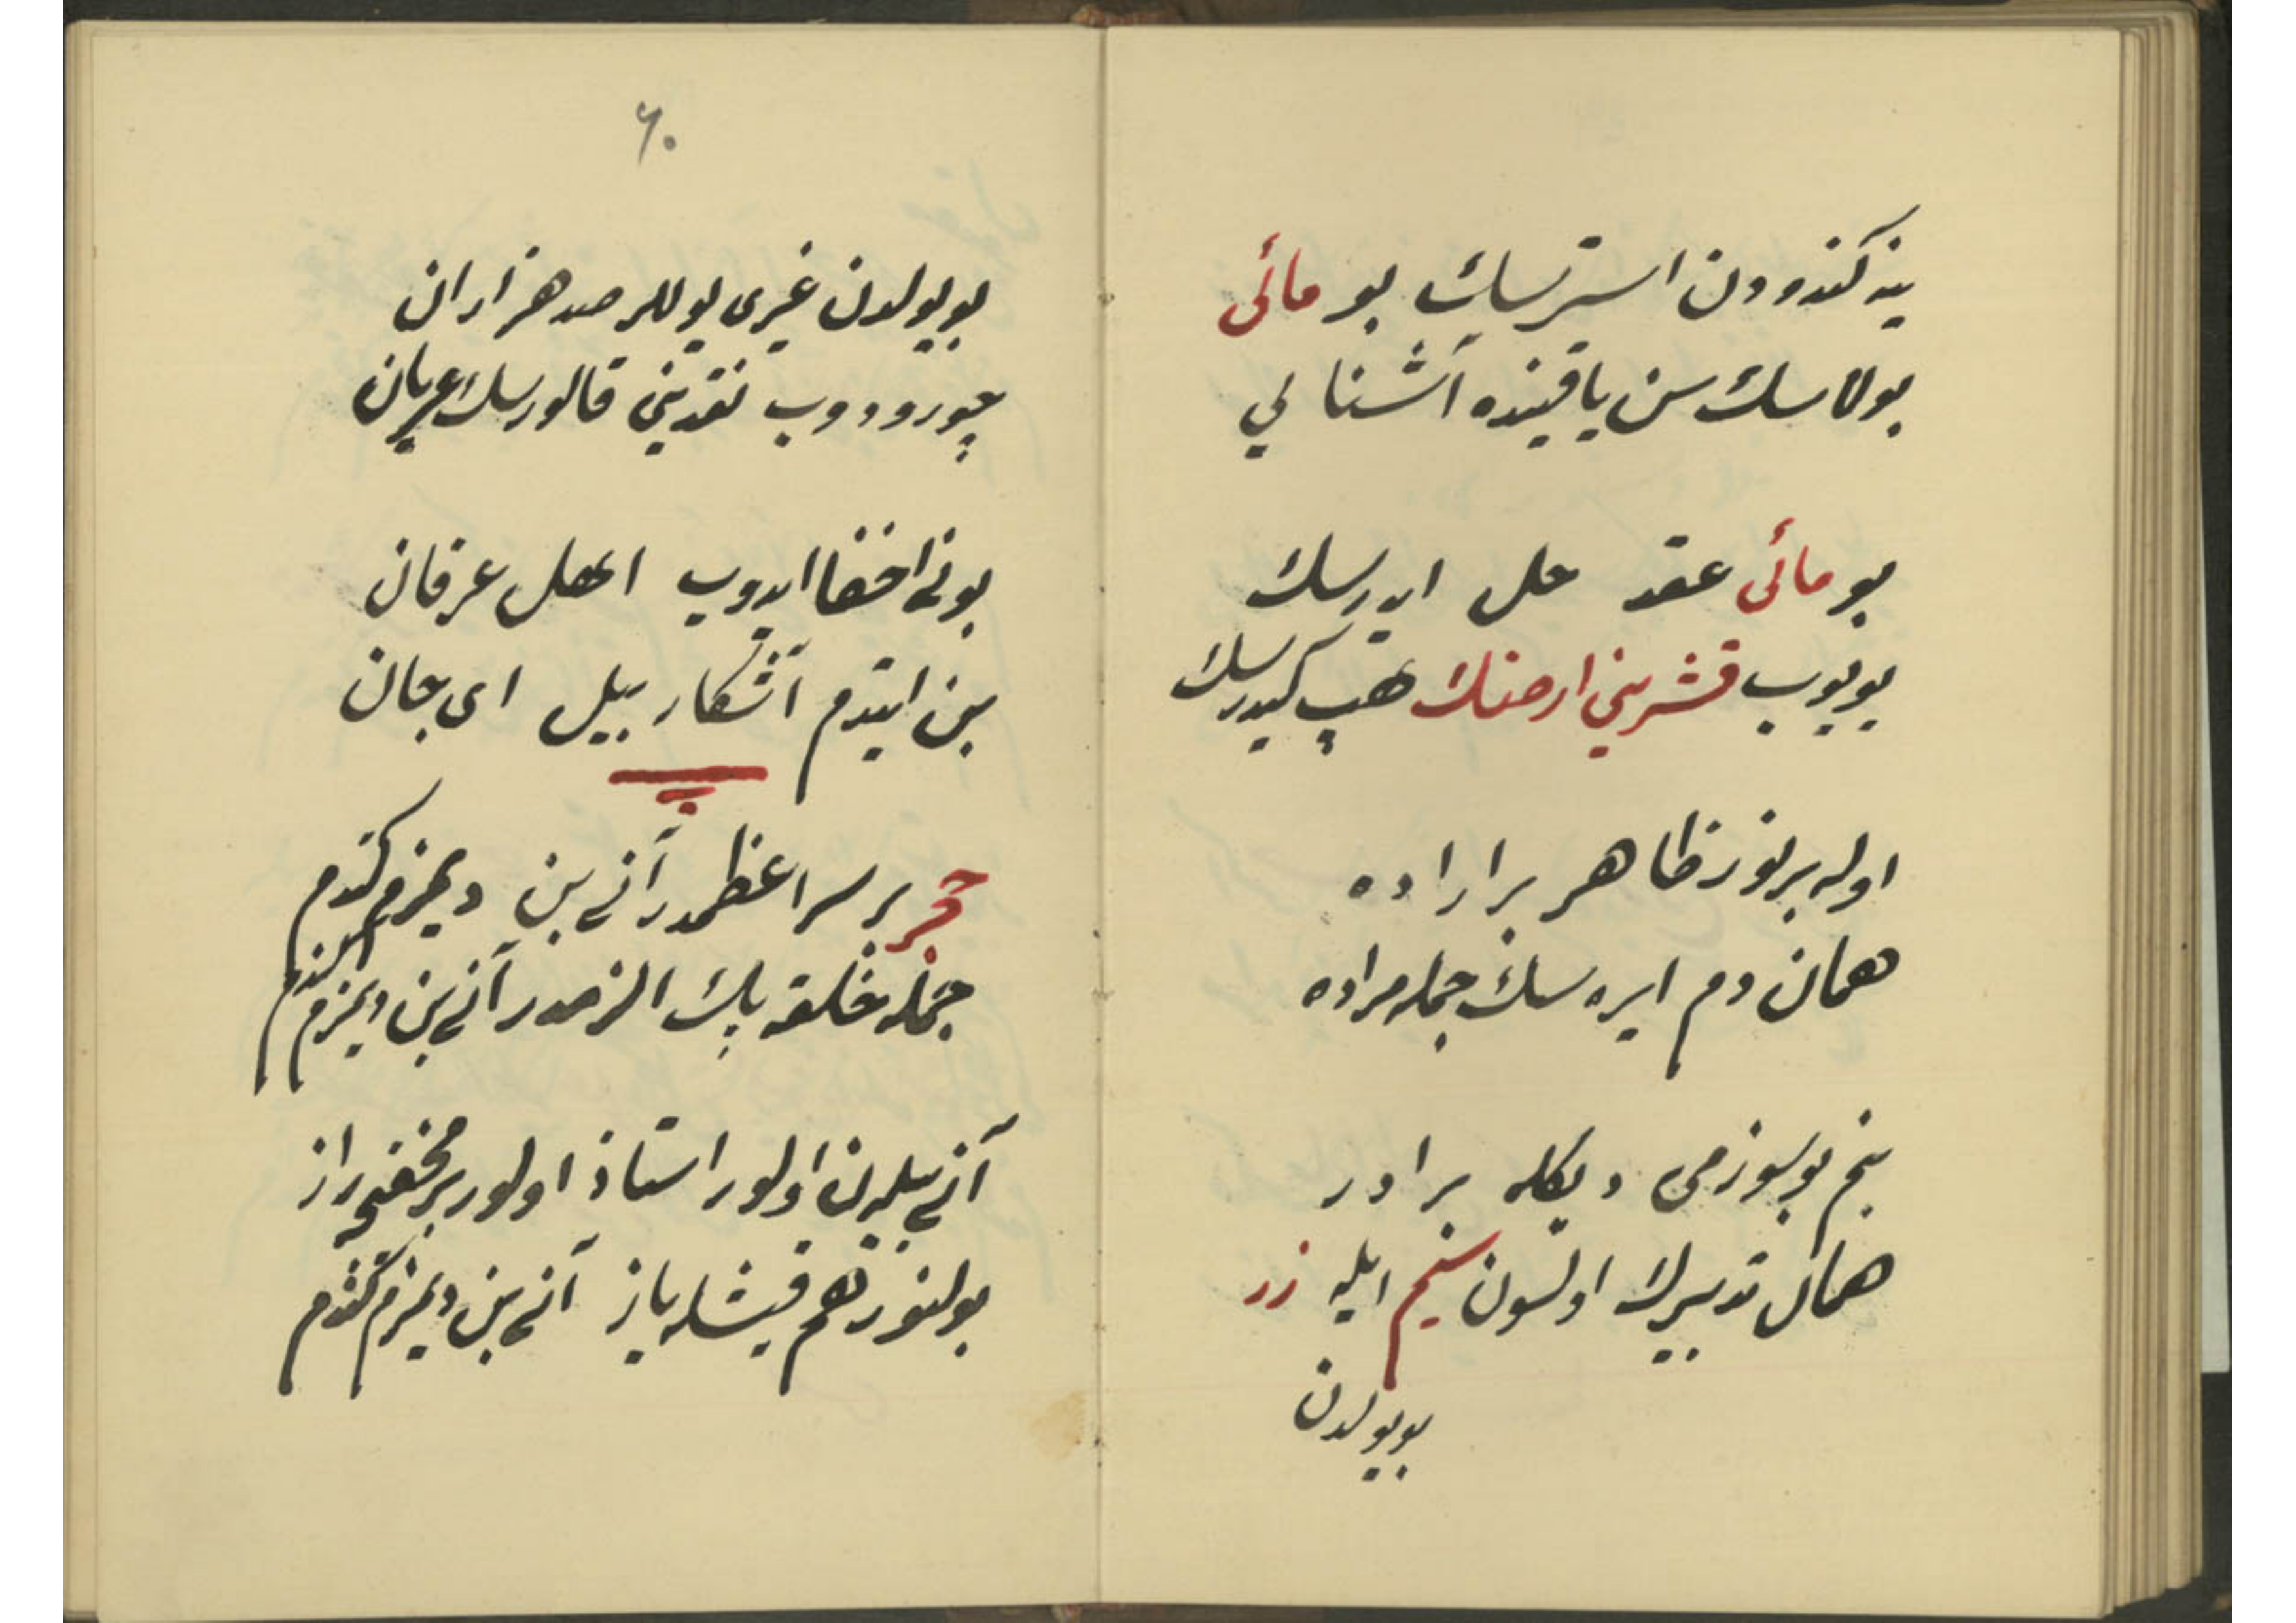 ینه کندودن استرسك بو مائی
بولاسك سن یاقینده آشنا لی
بو مائی عقد حل ایدرسك
یویوب قشرینی ارضنك هپ کیدرسك
اوله بر نور ظاهر بر اراده
همان دم ایره سك جمله مراده
بنم بو سوزمی دیکله برادر
همان تدبیرك اولسون سیم ایله زر
بو یولدن
۶۰
بو یولدن غیری یوللر صد هزاران
چورودوب نقدینی قالورسك عریان
بونی اخفا ایدوب اهل عرفان
بن ایتدم آشکار بیل ای جان
حجر بر سر اعظمدر آنی بن دیمزم کندم
جمله خلقه پك الزمدر آنی بن دیمزم کندم
آنی بیلین اولور استاذ اولور بر مخفی راز
بولنور هم قیشله یاز آنی بن دیمزم کندم